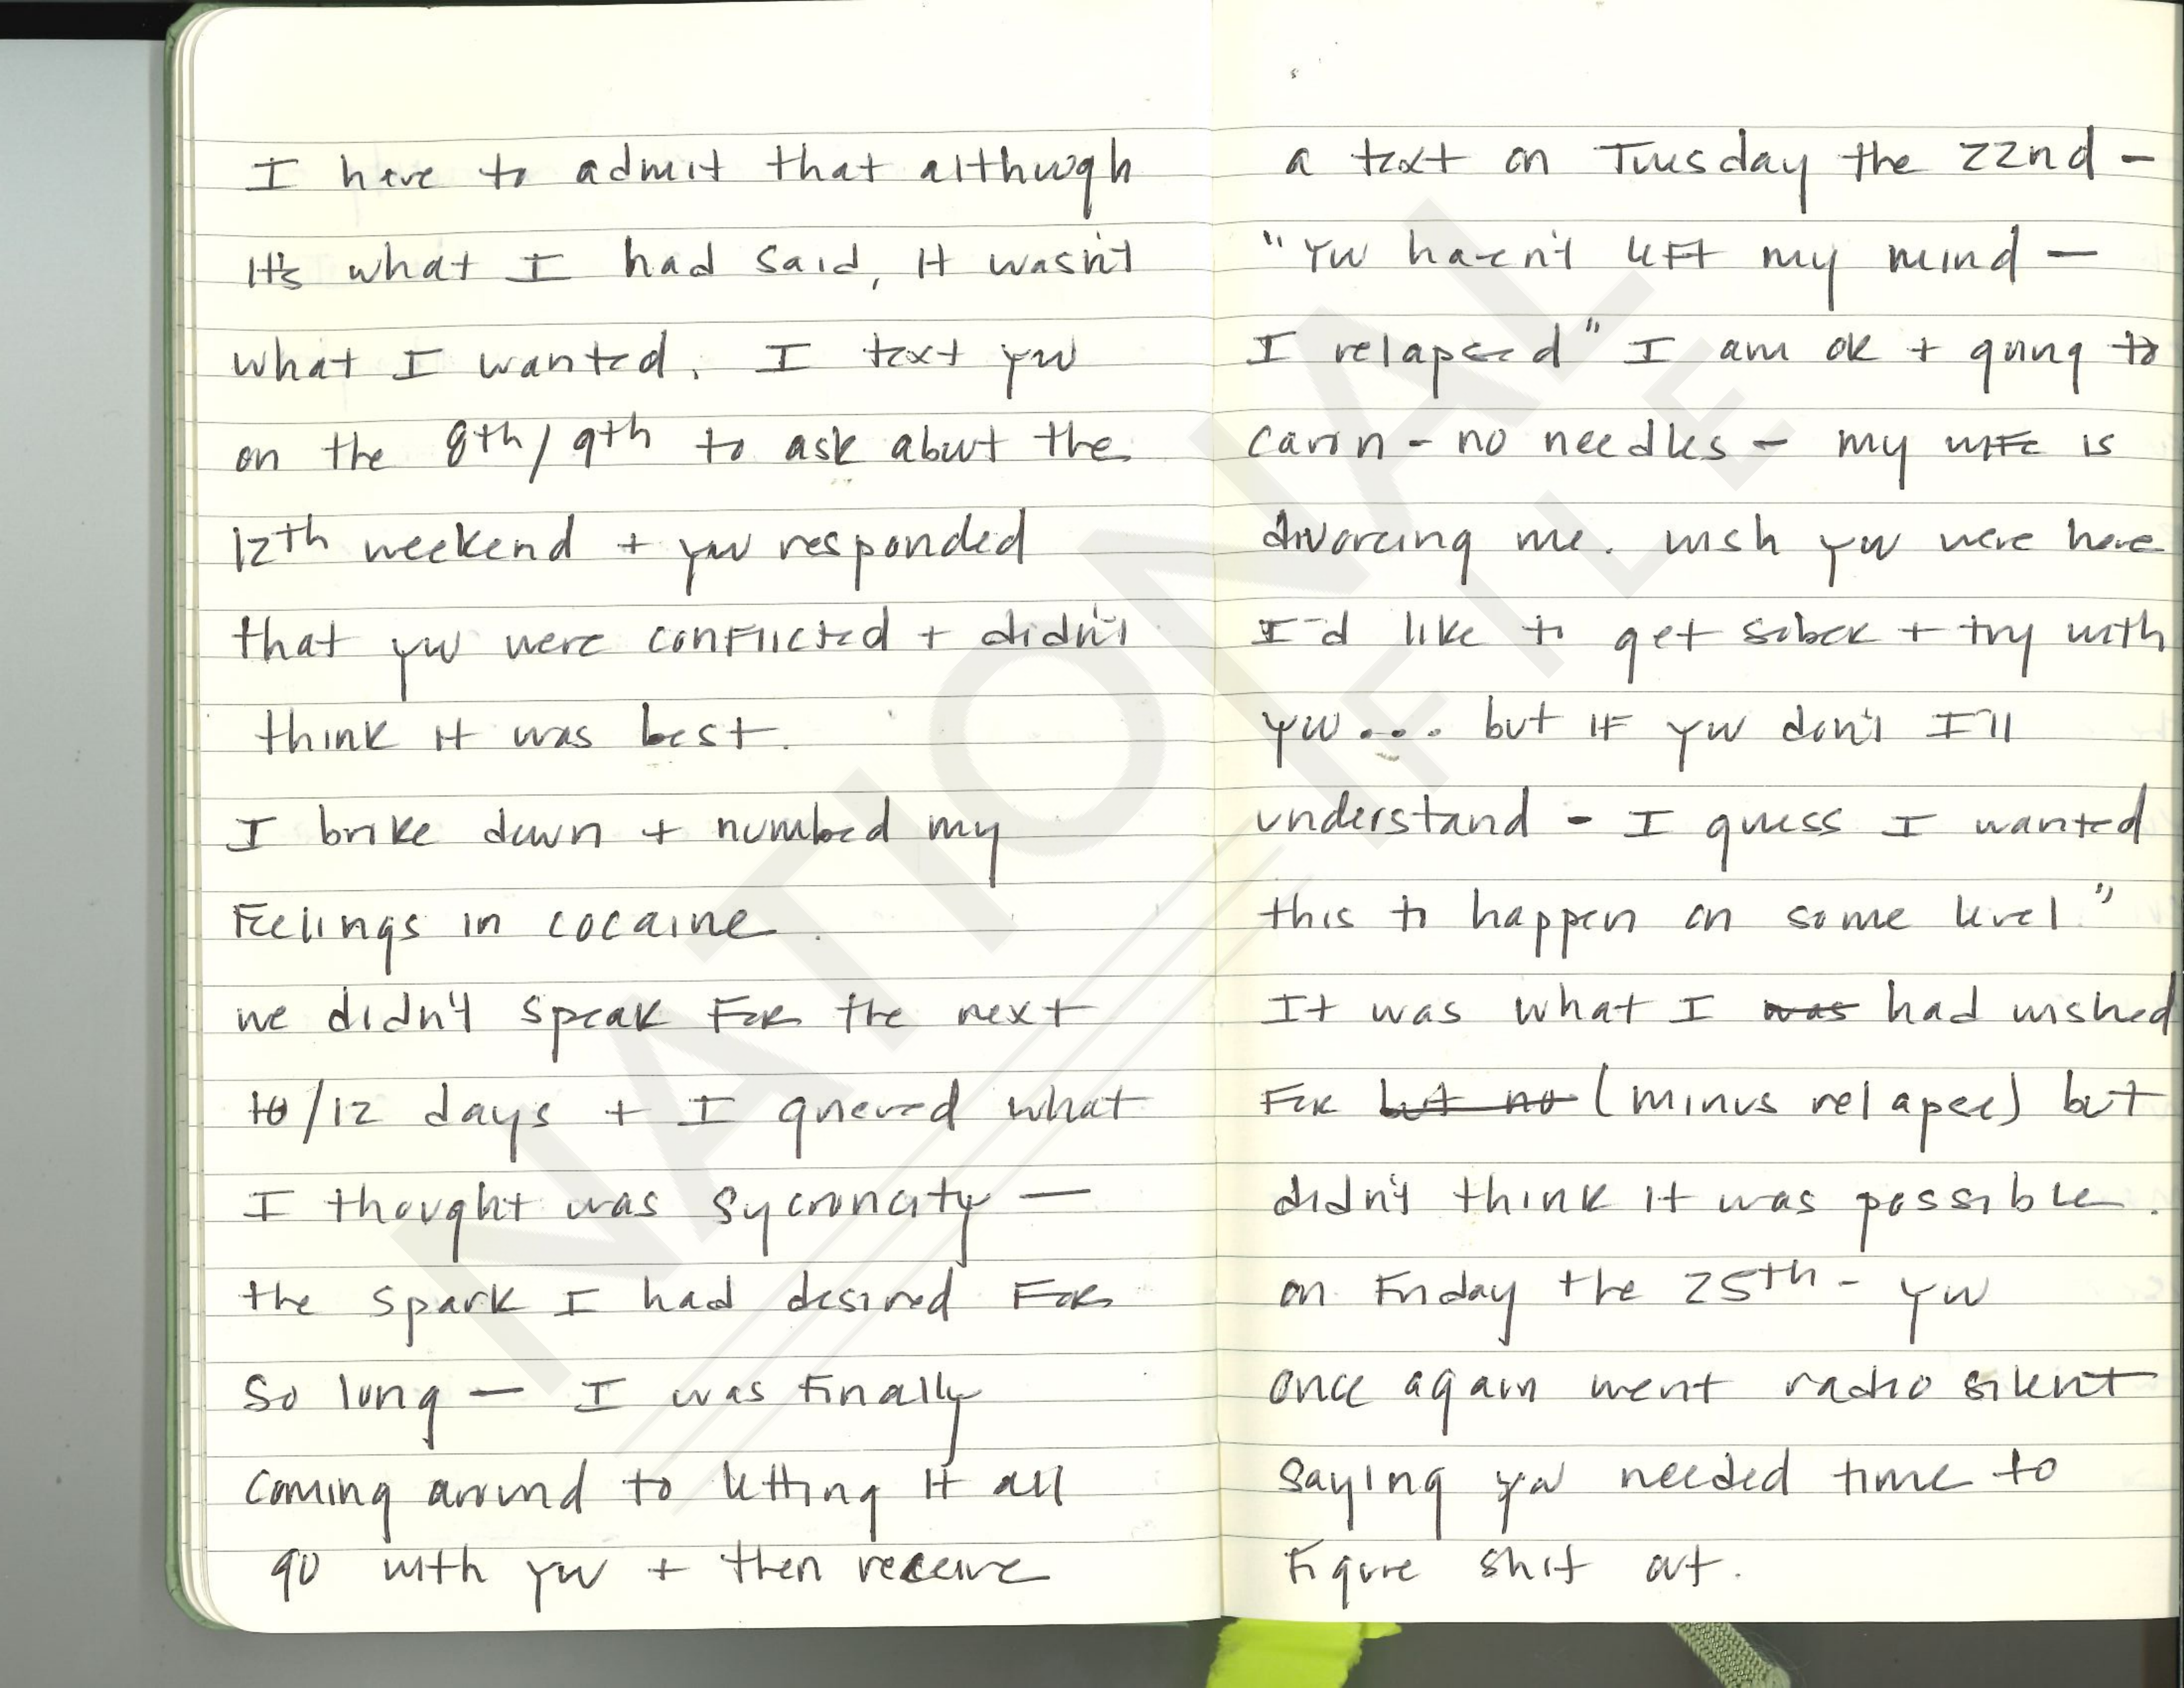 I have to admit that although
It's what I had said, it wasn't
what I wanted. I text you
on the 8th/9th to ask about the
12th weekend + you responded
that you were conflicted + didn't
think it was best.
I broke down + numbed my
feelings in cocaine.
we didn't speak for the next
10/12 days + I grieved what
I thought was sycroncity —
the spark I had desired for
so long — I was finally
coming around to letting it all
go with you + then receive
a text on Tuesday the 22nd -
"You haven't left my mind —
I relapsed" I am ok + going to
caron - no needles - my wife is
divorcing me. wish you were here
I'd like to get sober + try with
you... but if you don't I'll
understand - I guess I wanted
this to happen on some level"
It was what I was had wished
for but no (minus relapse) but
didn't think it was possible.
on Friday the 25th - you
once again went radio silent
saying you needed time to
figure shit out.
NATIONAL
FILE